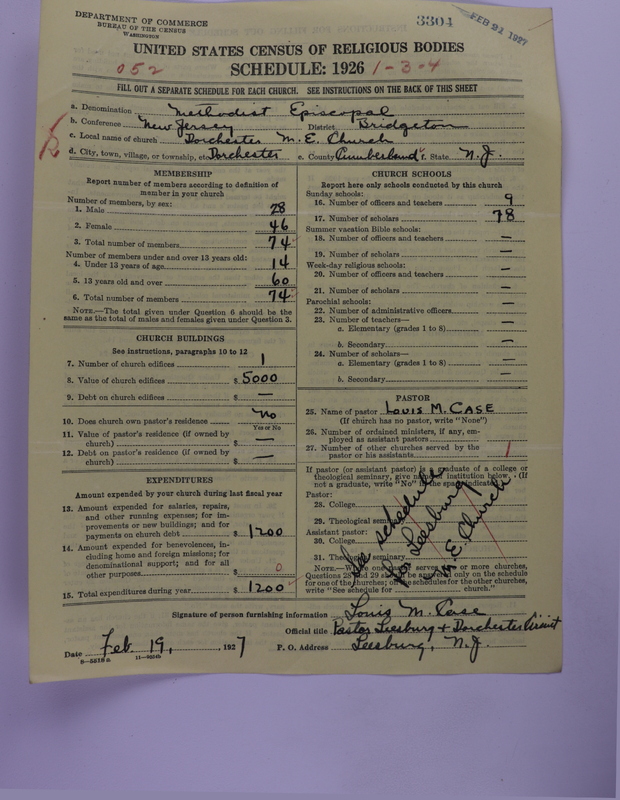 DEPARTMENT OF COMMERCE
BUREAU OF THE CENSUS
WASHINGTON
3304
FEB 21 1927
UNITED STATES CENSUS OF RELIGIOUS BODIES
052 SCHEDULE: 1926 1-3-4
FILL OUT A SEPARATE SCHEDULE FOR EACH CHURCH. SEE INSTRUCTIONS ON THE BACK OF THIS SHEET
a. Denomination Methodist Episcopal
b. Conference New Jersey District Bridgeton
c. Local name of church Dorchester M. E. Church
d. City, town, village, or township, etc. Dorchester e. County Cumberland f. State N.J.
MEMBERSHIP
Report number of members according to definition of
member in your church
Number of members, by sex:
1. Male 28
2. Female 46
3. Total number of members 74
Number of members under and over 13 years old:
4. Under 13 years of age 14
5. 13 years old and over 60
6. Total number of members 74
NOTE.—The total given under Question 6 should be the
same as the total of males and females given under Question 3.
CHURCH BUILDINGS
See instructions, paragraphs 10 to 12
7. Number of church edifices 1
8. Value of church edifices $ 5000
9. Debt on church edifices $ —
10. Does church own pastor's residence No
Yes or No
11. Value of pastor's residence (if owned by
church) $ —
12. Debt on pastor's residence (if owned by
church) $ —
EXPENDITURES
Amount expended by your church during last fiscal year
13. Amount expended for salaries, repairs,
and other running expenses; for im-
provements or new buildings; and for
payments on church debt $ 1200
14. Amount expended for benevolences, in-
cluding home and foreign missions; for
denominational support; and for all
other purposes $ 0
15. Total expenditures during year $ 1200
CHURCH SCHOOLS
Report here only schools conducted by this church
Sunday schools:
16. Number of officers and teachers 9
17. Number of scholars 78
Summer vacation Bible schools:
18. Number of officers and teachers —
19. Number of scholars —
Week-day religious schools:
20. Number of officers and teachers —
21. Number of scholars —
Parochial schools:
22. Number of administrative officers —
23. Number of teachers—
a. Elementary (grades 1 to 8) —
b. Secondary —
24. Number of scholars—
a. Elementary (grades 1 to 8) —
b. Secondary —
PASTOR
25. Name of pastor LOUIS M. CASE
(If church has no pastor, write "None")
26. Number of ordained ministers, if any, em-
ployed as assistant pastors
27. Number of other churches served by the
pastor or his assistants 1
If pastor (or assistant pastor) is a graduate of a college or
theological seminary, give name of institution below. (If
not a graduate, write "No" in the space indicated)
Pastor:
28. College
29. Theological seminary
Assistant pastor:
30. College
31. Theological seminary
See schedule
for Leesburg
M. E. Church
NOTE.—Where one pastor serves two or more churches,
Questions 28 and 29 should be answered only on the schedule
for one of the churches; on the schedules for the other churches,
write "See schedule for church."
Signature of person furnishing information Louis M. Case
Official title Pastor Leesburg & Dorchester Circuit
Date Feb 19, 1927 P. O. Address Leesburg, N.J.